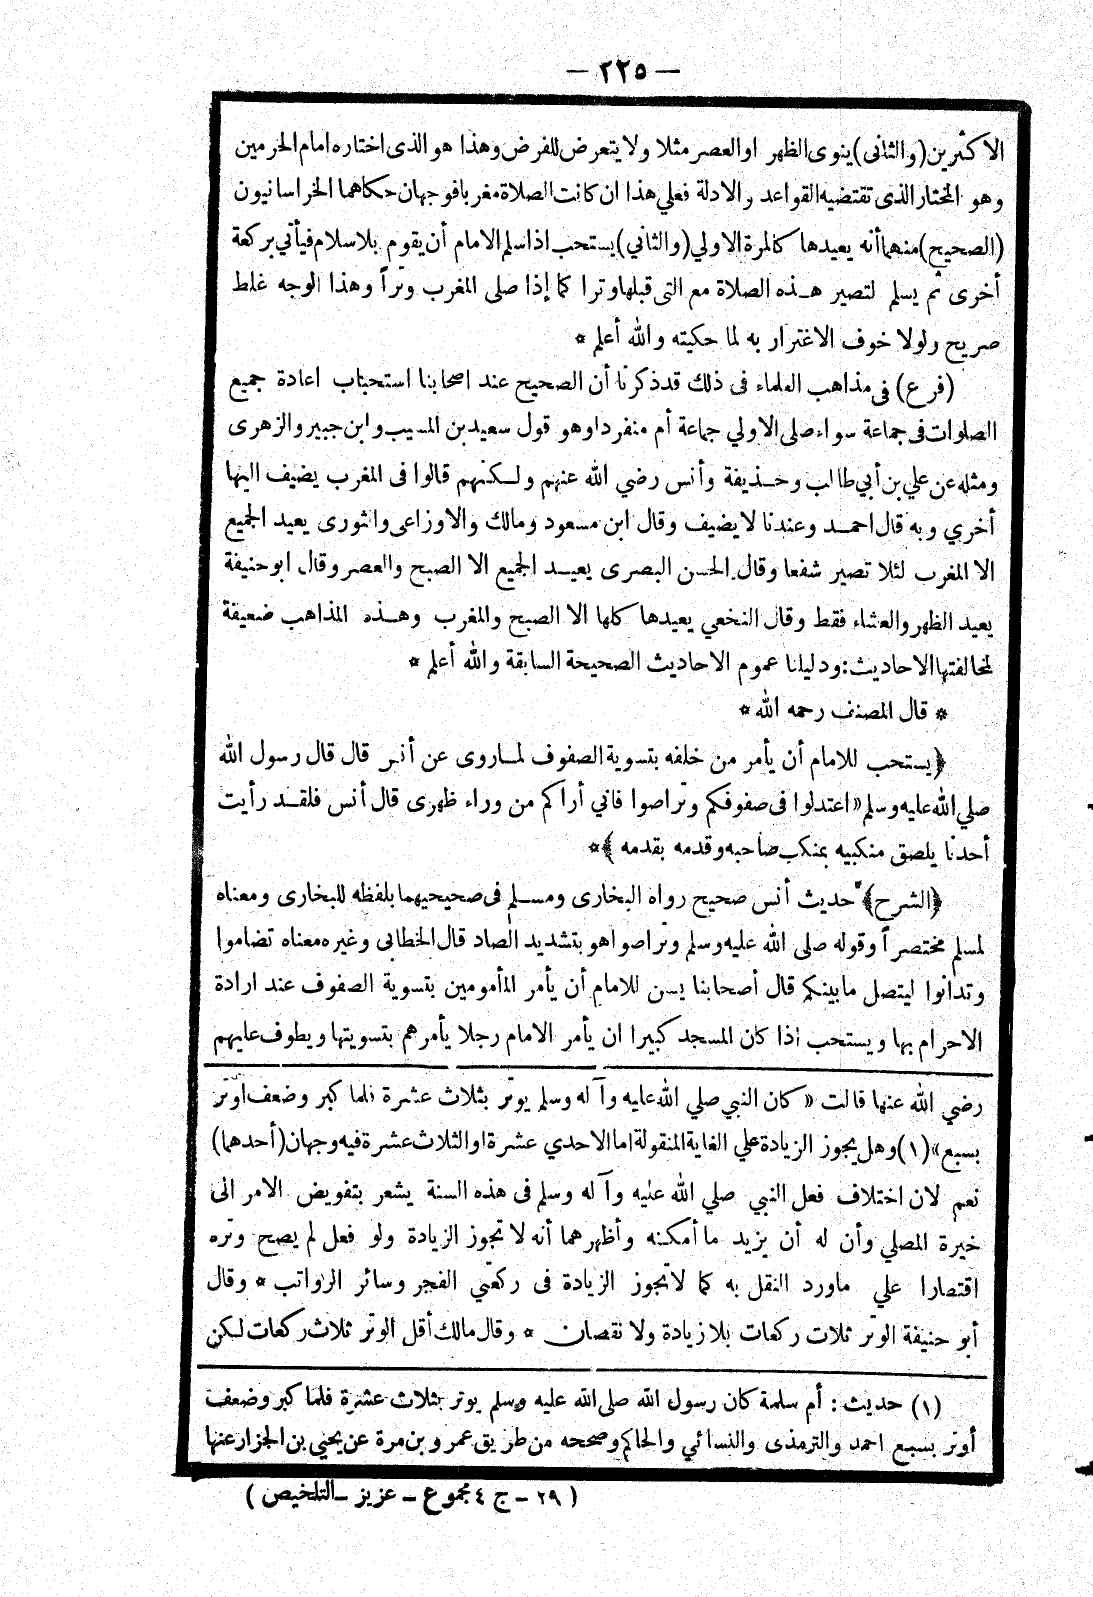 — ٢٢٥ —
الاكثرين (والثانى) ينوى الظهر او العصر مثلا ولا يتعرض للفرض وهذا هو الذى اختاره امام الحرمين
وهو المختار الذى تقتضيه القواعد والادلة فعلي هذا ان كانت الصلاة مغربا فوجهان حكاهما الخراسانيون
(الصحيح) منهما أنه يعيدها كالمرة الاولي (والثاني) يستحب اذا سلم الامام أن يقوم بلا سلام فيأتي بركعة
أخرى ثم يسلم لتصير هـذه الصلاة مع التى قبلها وترا كما إذا صلى المغرب وتراً وهذا الوجه غلط
صريح ولولا خوف الاغترار به لما حكيته والله أعلم *
(فرع) فى مذاهب العلماء فى ذلك قد ذكرنا أن الصحيح عند اصحابنا استحباب اعادة جميع
الصلوات فى جماعة سواء صلى الاولي جماعة أم منفردا وهو قول سعيد بن المسيب وابن جبير والزهرى
ومثله عن علي بن أبي طالب وحـذيفة وأنس رضي الله عنهم ولـكنهم قالوا فى المغرب يضيف اليها
أخري وبه قال احمـد وعندنا لا يضيف وقال ابن مسعود ومالك والاوزاعى والثورى يعيد الجميع
الا المغرب لئلا تصير شفعا وقال الحسن البصرى يعيـد الجميع الا الصبح والعصر وقال ابو حنيفة
يعيد الظهر والعشاء فقط وقال النخعي يعيدها كلها الا الصبح والمغرب وهـذه المذاهب ضعيفة
لمخالفتها الاحاديث: ودليلنا عموم الاحاديث الصحيحة السابقة والله أعلم *
* قال المصنف رحمه الله *
﴿يستحب للامام أن يأمر من خلفه بتسوية الصفوف لمـاروى عن أنس قال قال رسول الله
صلي الله عليه وسلم «اعتدلوا فى صفوفكم وتراصوا فاني أراكم من وراء ظهرى قال أنس فلقـد رأيت
أحدنا يلصق منكبيه بمنكب صاحبه وقدمه بقدمه ﴾*
﴿الشرح﴾ حديث أنس صحيح رواه البخارى ومسـلم فى صحيحيهما بلفظه للبخارى ومعناه
لمسلم مختصراً وقوله صلى الله عليه وسلم وتراصوا هو بتشديد الصاد قال الخطابى وغيره معناه تضاموا
وتدانوا ليتصل ما بينكم قال أصحابنا يسن للامام أن يأمر المأمومين بتسوية الصفوف عند ارادة
الاحرام بها ويستحب اذا كان المسجد كبيرا ان يأمر الامام رجلا يأمرهم بتسويتها ويطوف عليهم
رضي الله عنها قالت «كان النبي صلي الله عليه وآله وسلم يوتر بثلاث عشرة فلما كبر وضعف اوتر
بسبع» (١) وهل يجوز الزيادة علي الغاية المنقولة اما الاحدي عشرة او الثلاث عشرة فيه وجهان (أحدهما)
نعم لان اختلاف فعل النبي صلي الله عليه وآله وسلم فى هذه السنة يشعر بتفويض الامر الى
خيرة المصلي وأن له أن يزيد ما أمكنه وأظهرهما أنه لا تجوز الزيادة ولو فعل لم يصح وتره
اقتصارا علي ماورد النقل به كما لا تجوز الزيادة فى ركعتي الفجر وسائر الرواتب * وقال
أبو حنيفة الوتر ثلاث ركعات بلا زيادة ولا نقصان * وقال مالك أقل الوتر ثلاث ركعات لكن
(١) حديث: أم سلمة كان رسول الله صلى الله عليه وسلم يوتر بثلاث عشرة فلما كبر وضعف
أوتر بسبع احمد والترمذى والنسائي والحاكم وصححه من طريق عمرو بن مرة عن يحيي بن الجزار عنها
( ٢٩ - ج ٤ مجموع - عزيز - التلخيص )